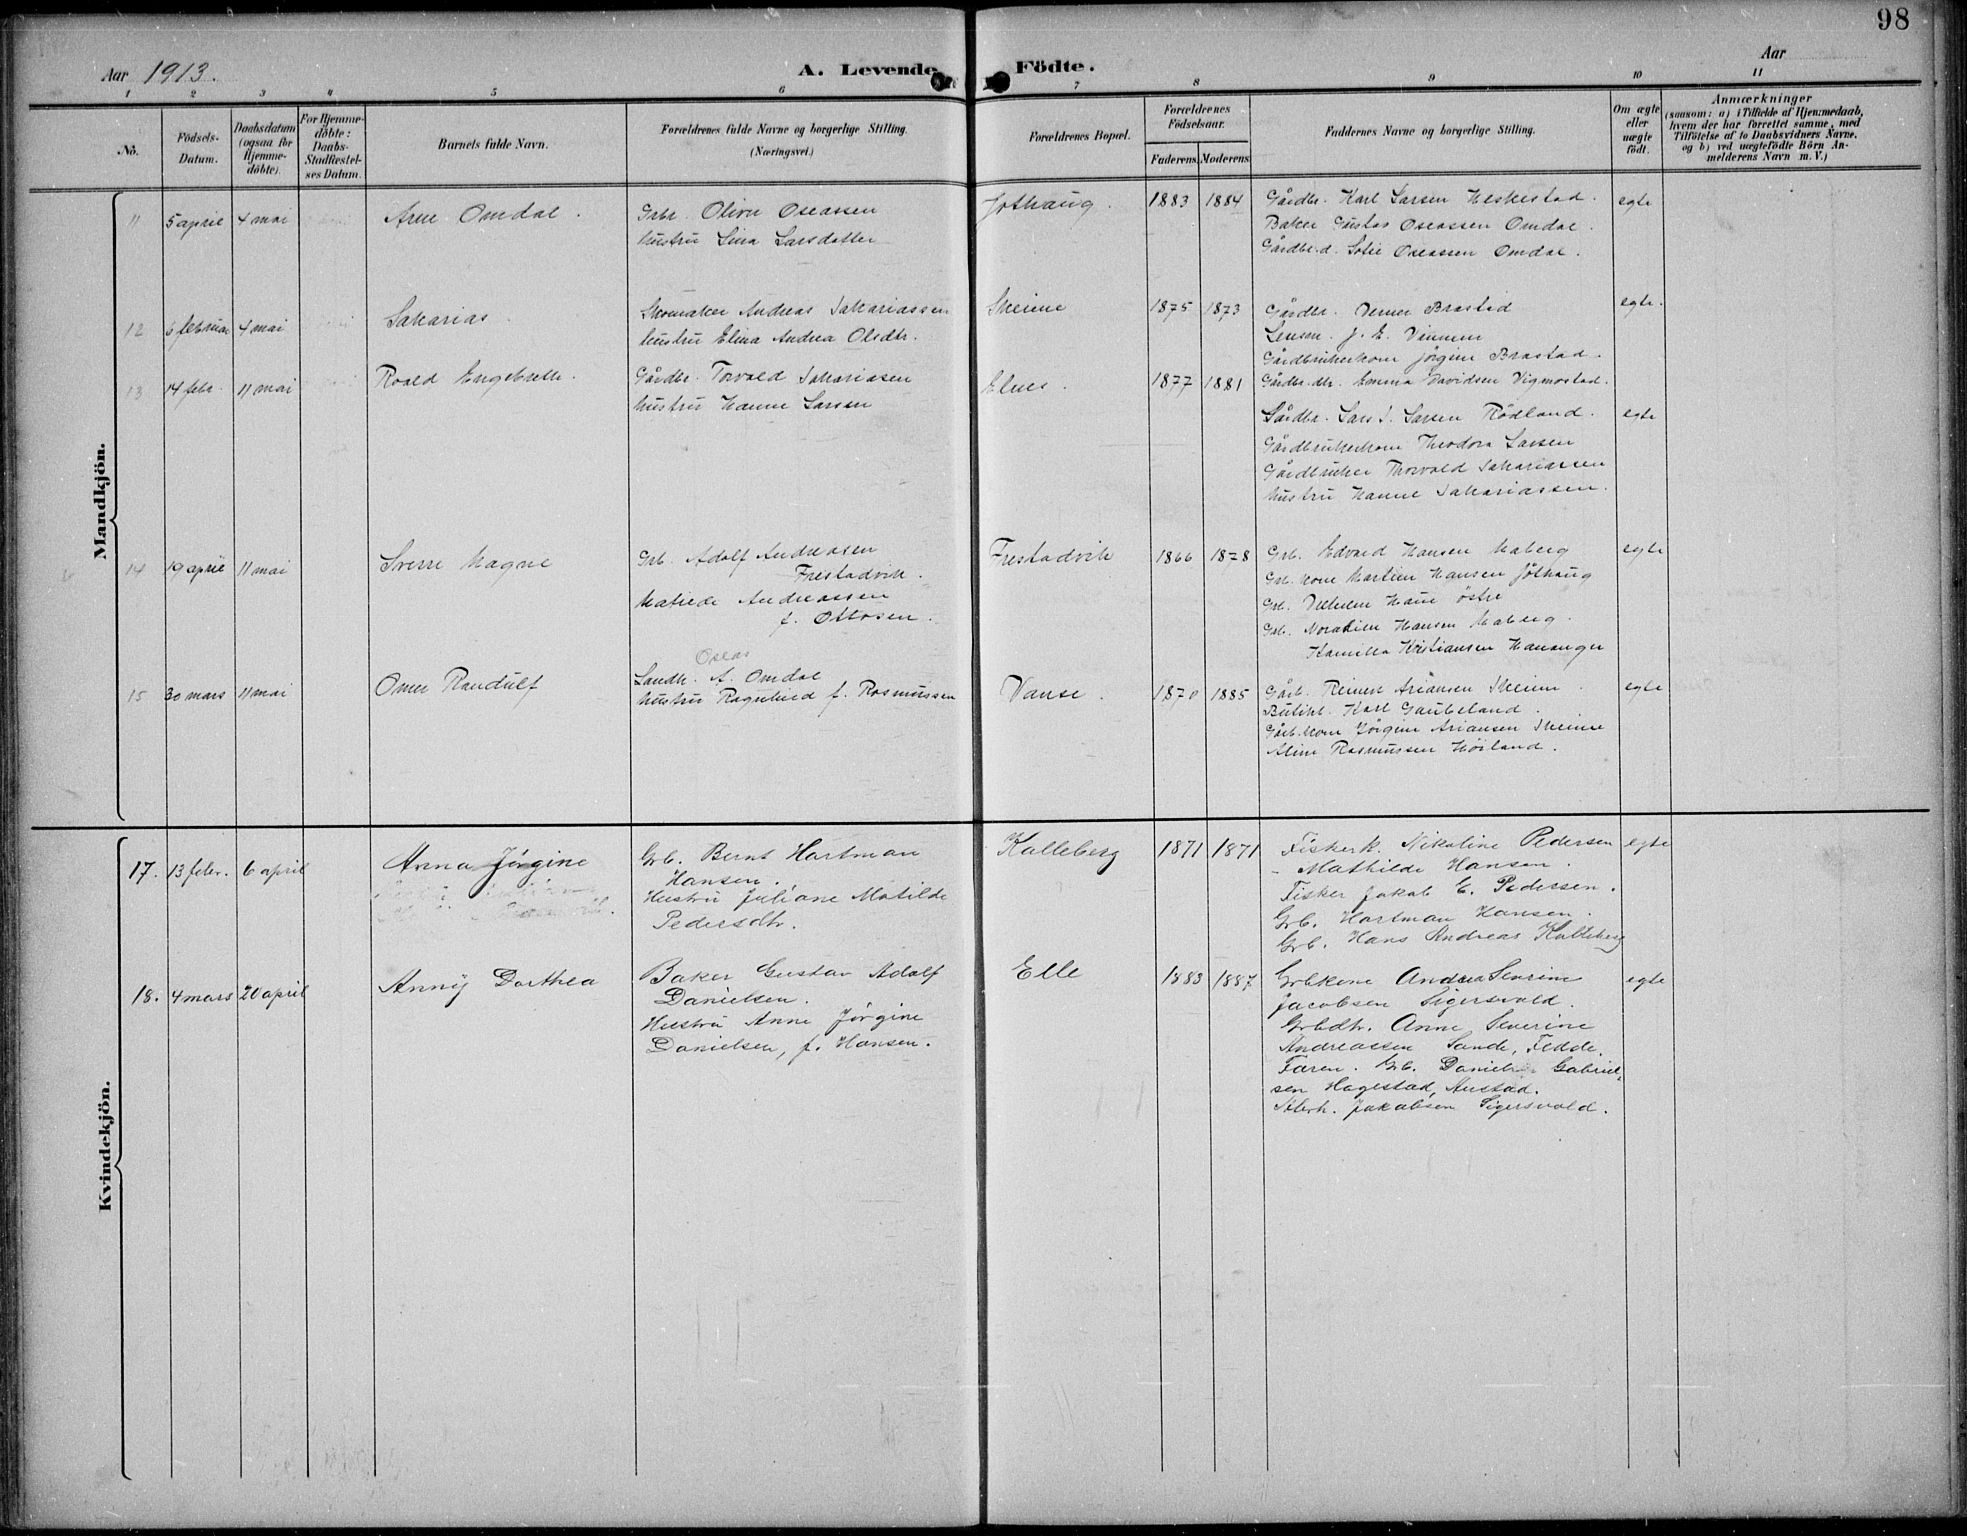 98
Aar 1913.
A. Levende Födte.
Aar
1 2 3 4 5 6 7 8 9 10 11
No.
Födsels-
Datum.
Daabsdatum
(ogsaa for
Hjemme-
döbte).
For Hjemme-
döbte:
Daabs-
Stadfæstel-
ses Datum.
Barnets fulde Navn.
Forældrenes fulde Navne og borgerlige Stilling.
(Næringsvei.)
Forældrenes Bopæl.
Forældrenes
Födselsaar.
Faderens. Moderens.
Faddernes Navne og borgerlige Stilling.
Om ægte
eller
uægte
födt.
Anmærkninger
(saasom: a) i Tilfælde af Hjemmedaab,
hvem der har forrettet samme, med
Tilföielse af to Daabsvidners Navne,
og b) ved uægtefödte Börn An-
melderens Navn m. V.)
Mandkjön.
11 5 april 4 mai Arne Omdal.
Grbr. Oliver Oseassen
hustru Sina Larsdatter
Jöthaug. 1883 1884
Gårdbr. Karl Larsen Heskestad.
Baker Gustav Oseassen Omdal.
Gårdbr.d. Sofie Oseassen Omdal.
egte
12 6 februar 4 mai Sakarias
Skomaker Andreas Sakariassen
hustru Elina Andrea Olsdtr.
Skeime 1875 1873
Gårdbr. Verner Brastad
Lensm. J. E.
Gårdbrukerkone Jörgine Brastad.
egte.
13 14 febr. 11 mai Roald Engebrette.
Gårdbr. Torvald Sakariasen
hustru Hanne Larsen
Elnes. 1877 1881
Gårdbr.dtr. Emma Davidsen Vigmostad.
Gårdbr. Lars J. Larsen Rödland.
Gårdbrukerkone Theodora Larsen
Gårdbruker Thorvald Sakariassen
hustru Hanne Sakariassen.
egte
14 19 april 11 mai Sverre Magne
Grb. Adolf Andreasen
Frestadvik.
Matilde Andreassen
f. Ottosen.
Frestadvik 1866 1878
Grb. Edvard Hansen Maberg
Grb. kone Martine Hansen Jöthaug
Grb. Vilhelm Haue östre
Grb. Hansen Maberg.
Kamilla Kristiansen Hananger
egte
15 30 mars 11 mai Omer Randulf
Oseas
Landh. A. Omdal
hustru Ragnhild f. Rasmussen
Vanse. 1870 1885
Gårb. Reinert Ariansen Skeime.
Butikb. Karl Gaubeland.
Gårb.kone Jörgine Ariansen Skeime
Aline Rasmussen Höiland.
egte
Kvindekjön.
17. 13 febr. 6 april Anna Jörgine
Grb. Bernt Hartman
Hansen.
Hustru Juliane Matilde
Pedersdtr.
Kalleberg 1871 1871
Fiskerk. Nikoline Pedersen
- Mathilde Hansen.
Fisker Jakob E. Pedersen.
Grb. Hartman Hansen.
Grb. Hans Andreas Kalleberg
egte
18. 4 mars 20 april Anny Dorthea
Baker Gustav Adolf
Danielsen.
Hustru Anne Jörgine
Danielsen, f. Hansen.
Elle 1883 1887
Grbkone Andrea Severine
Jacobsen Sigersvold.
Grbdtr. Anne Severine
Andreassen Sande, Fedde.
Faren. Grb. Daniel Gabriel-
sen Hagestad, Austad.
Jakobsen Sigersvold.
egte